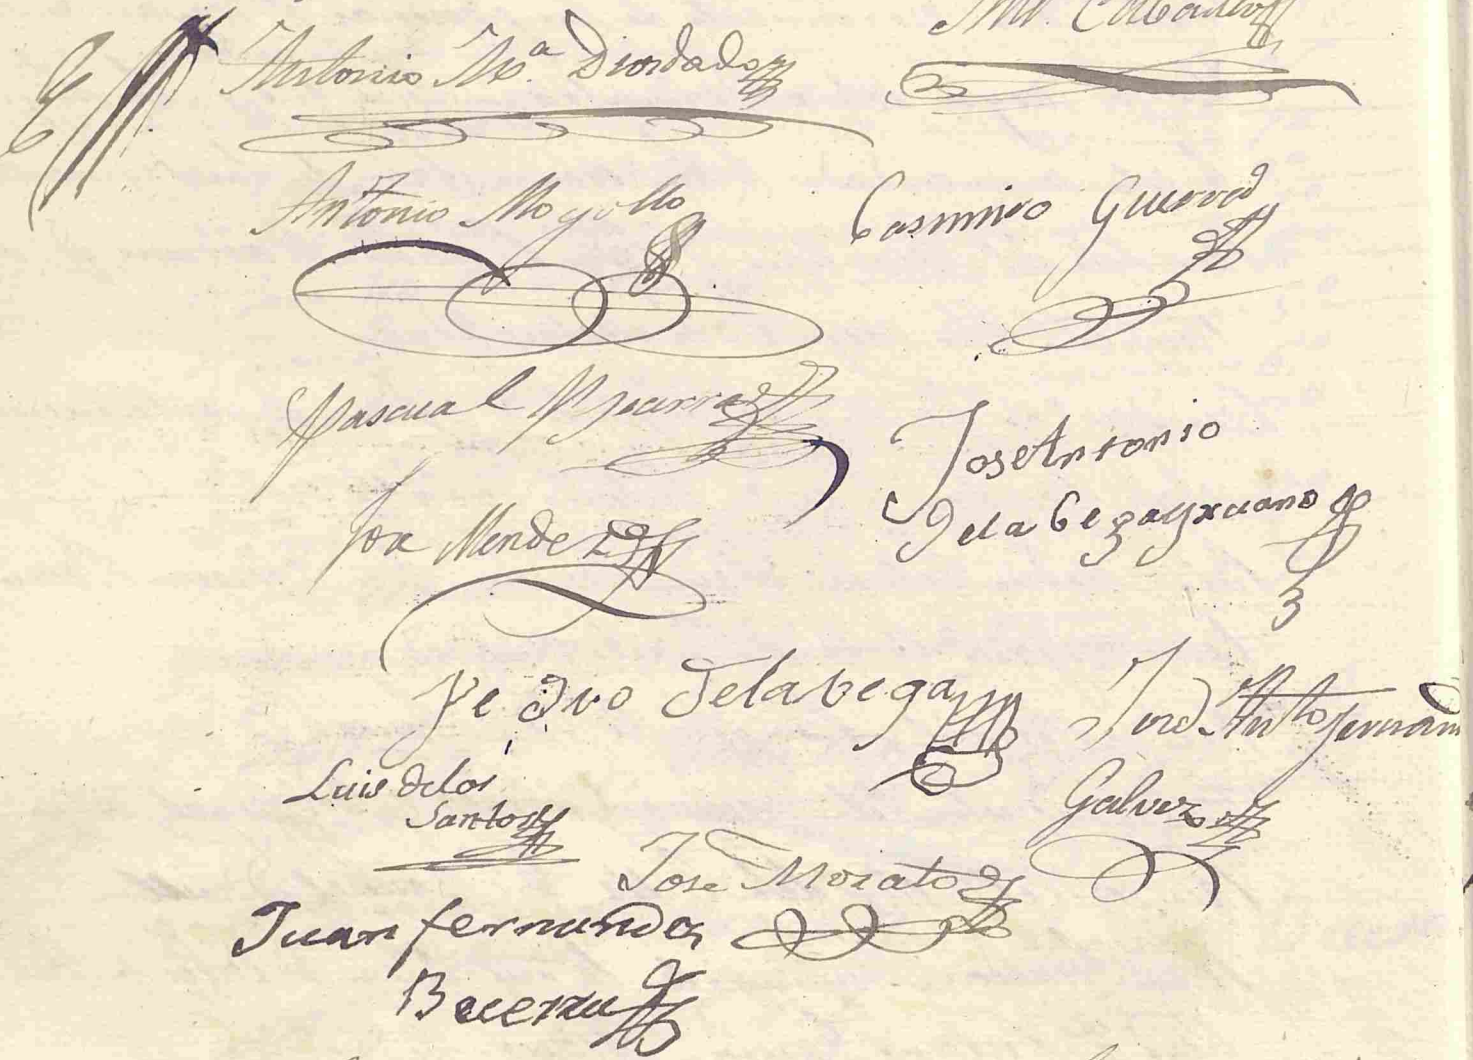 Antonio Mª Diosdado
Caballero
Antonio Mogollo
Casimiro Guerra
Pascual Yparra
Jose Antonio
de la
Jose Mendez
Pedro de la vega
Jose Anto fernan
Luis delos
Santos
Galvez
Jose Morato
Juan fernandez
Becerra